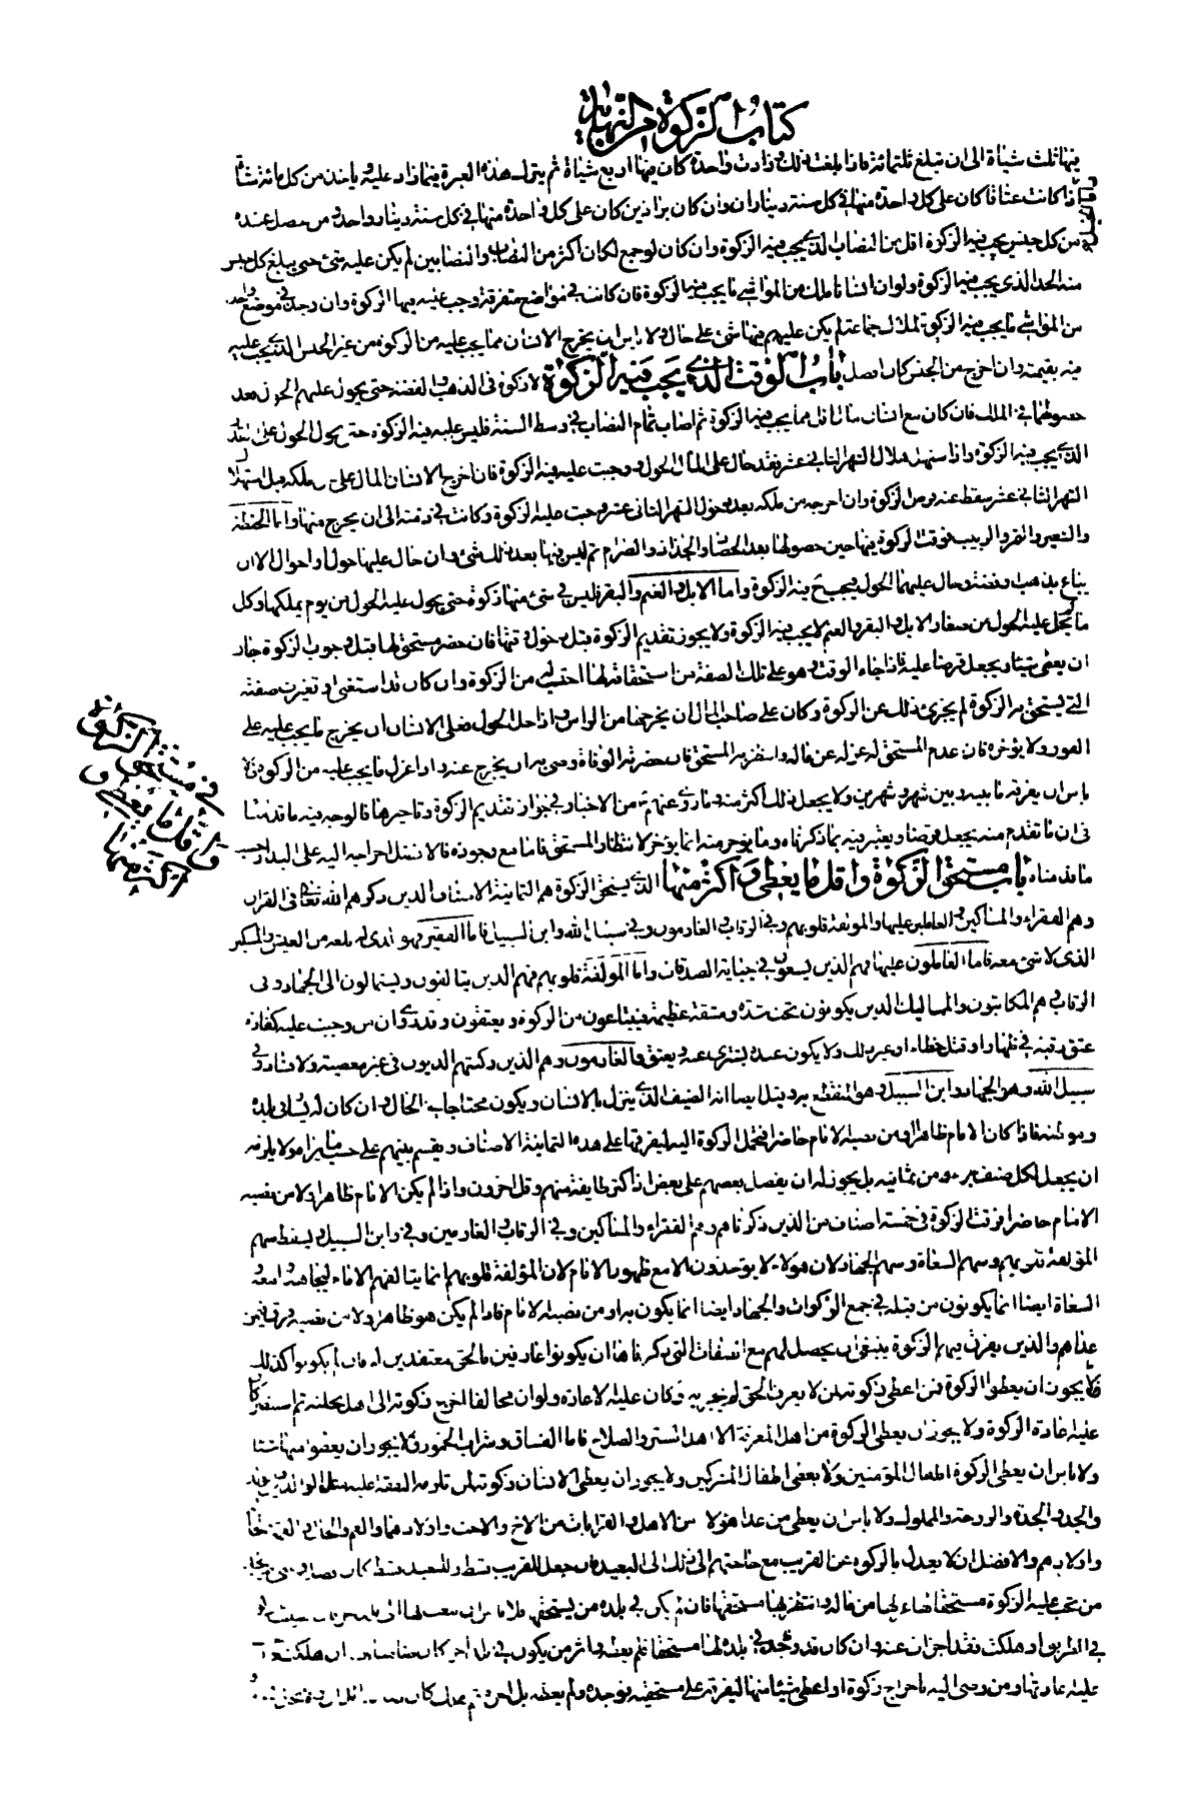 كتاب الزكوة من النهاية
فيها ثلث شياة الى ان تبلغ ثلثمائة فاذا بلغت ذلك وزادت واحدة كان فيها اربع شياة ثم يترك هذه العبرة فيما زاد عليه ويأخذ من كل مائة شاة
اذا كانت عتاقا كان على كل واحدة منها في كل سنة ديناران وان كان براذين كان على كل واحدة منها في كل سنة دينار واحد ومن حصل عنده
من كل جنس يجب فيه الزكوة اقل من النصاب الذي يجب فيه الزكوة وان كان لو جمع لكان اكثر من النصاب والنصابين لم يكن عليه شئ حتى يبلغ كل جنس
منه الحد الذي يجب فيه الزكوة ولو ان انسانا ملك من المواشي ما يجب فيه الزكوة فان كانت في مواضع متفرقة وجب عليه فيها الزكوة وان وجد في موضع واحد
من المواشي ما يجب فيه الزكوة لملاك جماعة لم يكن عليهم فيها شئ على حال ولا بأس ان يخرج الانسان مما يجب عليه من الزكوة من غير الجنس الذي يجب عليه
فيه بقيمته وان اخرج من الجنس كان افضل باب الوقت الذي يجب فيه الزكوة لا زكوة في الذهب والفضة حتى يحول عليهما الحول بعد
حصولهما في الملك فان كان مع انسان مال اقل مما يجب فيه الزكوة ثم اصاب تمام النصاب في وسط السنة فليس عليه فيه الزكوة حتى يحول الحول على
الذي يجب فيه الزكوة واذا استهل هلال الشهر الثاني عشر فقد حال على المال الحول ووجبت عليه فيه الزكوة فان اخرج الانسان المال عن ملكه قبل استهلال
الشهر الثاني عشر سقط عنه فرض الزكوة وان اخرجه من ملكه بعد دخول الشهر الثاني عشر وجبت عليه الزكوة وكانت في ذمته الى ان يخرج منها واما الحنطة
والشعير والتمر والزبيب فوقت الزكوة فيها حين حصولها بعد الحصاد والجذاذ والصرام ثم ليس فيها بعد ذلك شئ وان حال عليها حول او احوال الا ان
يباع بذهب وفضة وحال عليهما الحول فيجب ح فيه الزكوة واما الابل والغنم والبقر فليس في شئ منها زكوة حتى يحول عليه الحول من يوم يملكها وكل
ما لم يحل عليه الحول من صغار الابل والبقر والغنم لا يجب فيه الزكوة ولا يجوز تقديم الزكوة قبل دخول وقتها فان حضر مستحق لها قبل وجوب الزكوة جاز
ان يعطى شيئا ويجعل قرضا عليه فاذا جاء الوقت وهو على تلك الصفة من استحقاقه لها احتسب من الزكوة وان كان قد استغنى او تغيرت صفته
التي يستحق بها الزكوة لم يجزئ ذلك عن الزكوة وكان على صاحب المال ان يخرجها من الراس واذا حل الحول فعلى الانسان ان يخرج ما يجب عليه على
الفور ولا يؤخره فان عدم المستحق له عزله عن ماله وانتظر به المستحق فان حضرته الوفاة وصى به ان يخرج عنه واذا عزل ما يجب عليه من الزكوة فلا
باس ان يفرقه ما بينه وبين شهر وشهرين ولا يجعل ذلك اكثر منه وما روي عنهم من الاخبار في جواز تقديم الزكوة وتاخيرها فالوجه فيه ما قدمناه
في ان ما تقدم منه يجعل قرضا ويعتبر فيه ما ذكرناه وما يؤخر منه انما يؤخر لانتظار المستحق فاما مع وجوده فالافضل اخراجه اليه على البدار حسب
ما قدمناه باب مستحق الزكوة واقل ما يعطى واكثر منها الذي يستحق الزكوة هم الثمانية الاصناف الذين ذكرهم الله تعالى في القران
وهم الفقراء والمساكين والعاملين عليها والمؤلفة قلوبهم وفي الرقاب والغارمون وفي سبيل الله وابن السبيل فاما الفقير فهو الذي له بلغة من العيش والمسكين
الذي لا شئ معه فاما العاملون عليها فهم الذين يسعون في جباية الصدقات واما المؤلفة قلوبهم فهم الذين يتالفون ويستمالون الى الجهاد وفي
الرقاب هم المكاتبون والمماليك الذين يكونون تحت شدة ومشقة عظيمة فيبتاعون من الزكوة ويعتقون وقد روي ان من وجبت عليه كفارة
عتق رقبة في ظهار او قتل خطاء او غير ذلك ولا يكون عنده يشترى عنه ويعتق والغارمون هم الذين ركبتهم الديون في غير معصية ولا فساد وفي
سبيل الله وهو الجهاد وابن السبيل وهو المنقطع به وقيل ايضا انه الضيف الذي ينزل بالانسان ويكون محتاجا في الحال وان كان له يسار في بلده
وموطنه فاذا كان الامام ظاهرا او من نصبه الامام حاضرا فيحمل الزكوة اليه ليفرقها على هذه الثمانية الاصناف ويقسم بينهم على حسب ما يراه ولا يلزمه
ان يجعل لكل صنف جزءا من ثمانية بل يجوز له ان يفضل بعضهم على بعض اذا كثر طايفة منهم وقل اخرون واذا لم يكن الامام ظاهرا ولا من نصبه
الامام حاضرا فرقت الزكوة في خمسة اصناف من الذين ذكرناهم وهم الفقراء والمساكين وفي الرقاب والغارمين وفي وابن السبيل ويسقط سهم
المؤلفة قلوبهم وسهم السعاة وسهم الجهاد لان هؤلاء لا يوجدون الا مع ظهور الامام لان المؤلفة قلوبهم انما يتالفهم الامام ليجاهدوا معه
السعاة ايضا انما يكونون من قبله في جمع الزكوات والجهاد ايضا انما يكون به او من نصبه الامام فاذا لم يكن هو ظاهرا ولا من نصبه فرق فيمن
عداهم والذين يفرق فيهم الزكوة ينبغي ان يحصل لهم مع الصفات التي ذكرناها ان يكونوا عارفين بالحق معتقدين له فان لم يكونوا كذلك
فلا يجوز ان يعطوا الزكوة فمن اعطى زكوته لمن لا يعرف الحق لم يجزيه وكان عليه الاعادة ولو ان مخالفا اخرج زكوته الى اهل نحلته ثم استبصر كان
عليه اعادة الزكوة ولا يجوز ان يعطى الزكوة من اهل المعرفة الا اهل الستر والصلاح فاما الفساق وشراب الخمور فلا يجوز ان يعطوا منها شيئا
ولا باس ان يعطى الزكوة اطفال المؤمنين ولا يعطى اطفال المشركين ولا يجوز ان يعطى الانسان زكوته لمن تلزمه النفقة عليه مثل الوالدين
والجد والجدة والزوجة والمملوك ولا باس ان يعطى من عدا هؤلاء من الاهل والقرابات من الاخ والاخت واولادهما والعم والخال والعمة
واولادهم والافضل ان لا يعدل بالزكوة عن القريب مع حاجتهم الى ذلك الى البعيد فان جعل للقريب قسط وللبعيد قسط كان
من تجب عليه الزكوة مستحقا لها عزلها من ماله وانتظر بها مستحقها فان لم يكن في بلده من يستحقها فلا باس ان يبعث بها الى بلد
في الطريق او هلكت فقد اجزأت عنه وان كان قد وجد في بلده لها مستحقا فلم يعطه واثر من يكون في بلد اخر كان ضامنا لها ان هلكت
عليه اعادتها ومن وصى اليه باخراج زكوة او اعطي شيئا منها ليفرقه على مستحقيه فوجده ولم يعطه بل اخره ثم هلك كان
في مستحق الزكوة
واقل ما يعطى و
اكثر منها